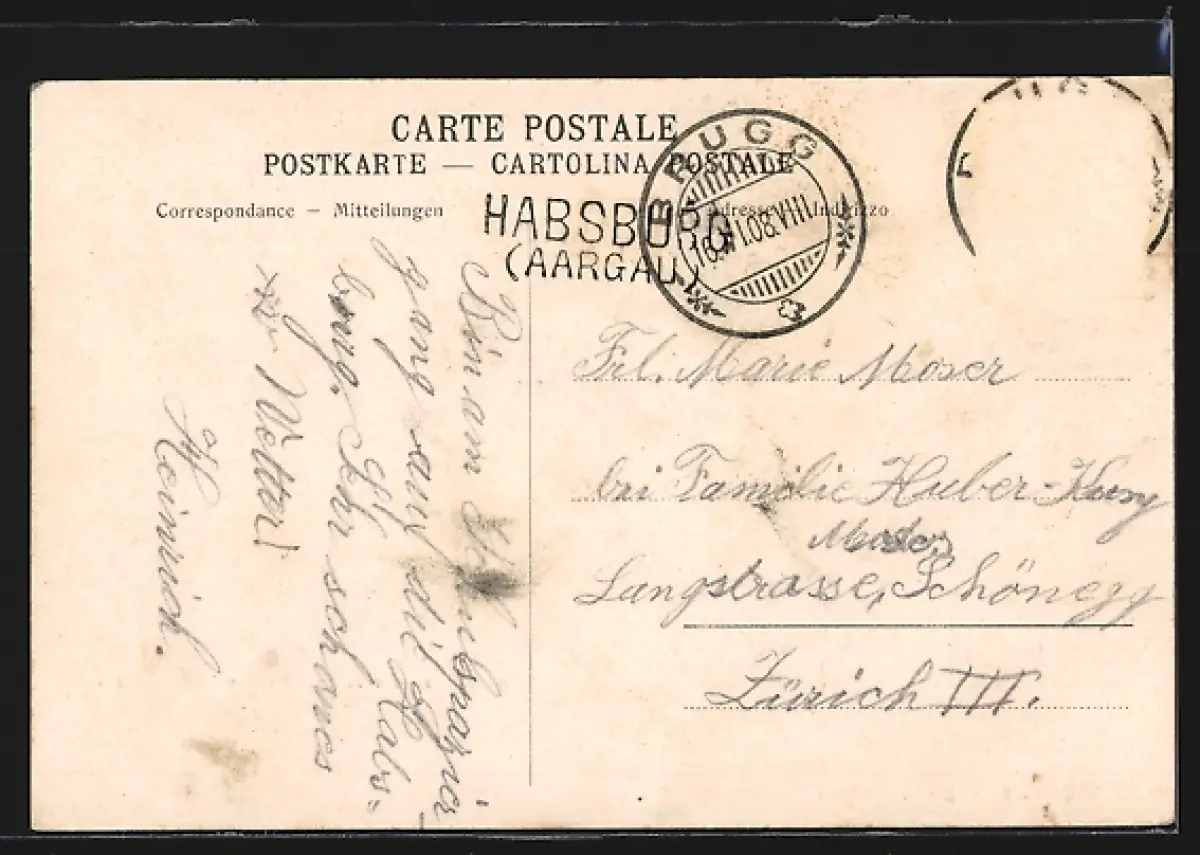 CARTE POSTALE
POSTKARTE — CARTOLINA POSTALE
Correspondance – Mitteilungen
Adresse Indirizzo
HABSBURG
(AARGAU)
BRUGG
VIII
Bin am
gang auf die Habs=
burg. Sehr schönes
Wetter!
Heinrich.
Frl. Marie Moser
bei Familie Huber-
Moser
Langstrasse, Schönegg
Zürich III.